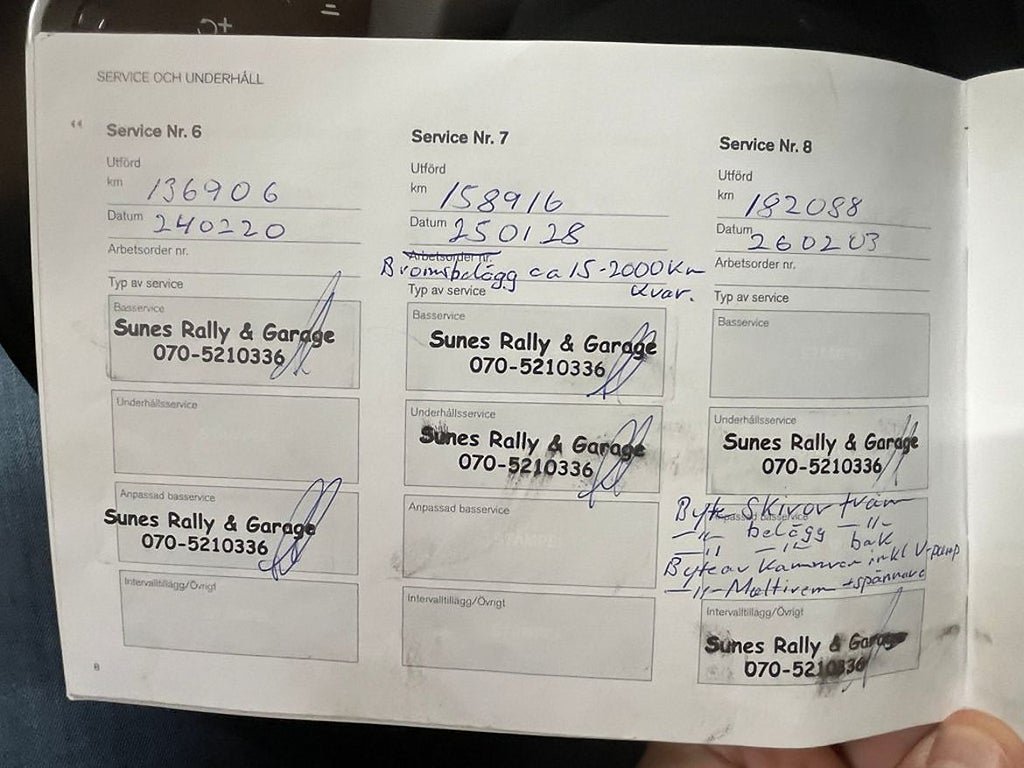 SERVICE OCH UNDERHÅLL
Service Nr. 6
Utförd
km 136906
Datum 240220
Arbetsorder nr.
Typ av service
Basservice
Sunes Rally & Garage
070-5210336
Underhållsservice
Anpassad basservice
Sunes Rally & Garage
070-5210336
Intervalltillägg/Övrigt
8
Service Nr. 7
Utförd
km 158916
Datum 250128
Arbetsorder nr.
Bromsbelägg ca 15-2000 Km
kvar.
Typ av service
Basservice
Sunes Rally & Garage
070-5210336
Underhållsservice
Sunes Rally & Garage
070-5210336
Anpassad basservice
Intervalltillägg/Övrigt
Service Nr. 8
Utförd
km 182088
Datum 260203
Arbetsorder nr.
Typ av service
Basservice
Underhållsservice
Sunes Rally & Garage
070-5210336
Byte Skivor fram
Anpassad basservice
—"— belägg —"—
—"— —"— bak
Byte av Kamrem inkl V-pump
—"— Multirem + spännare
Intervalltillägg/Övrigt
Sunes Rally & Garage
070-5210336